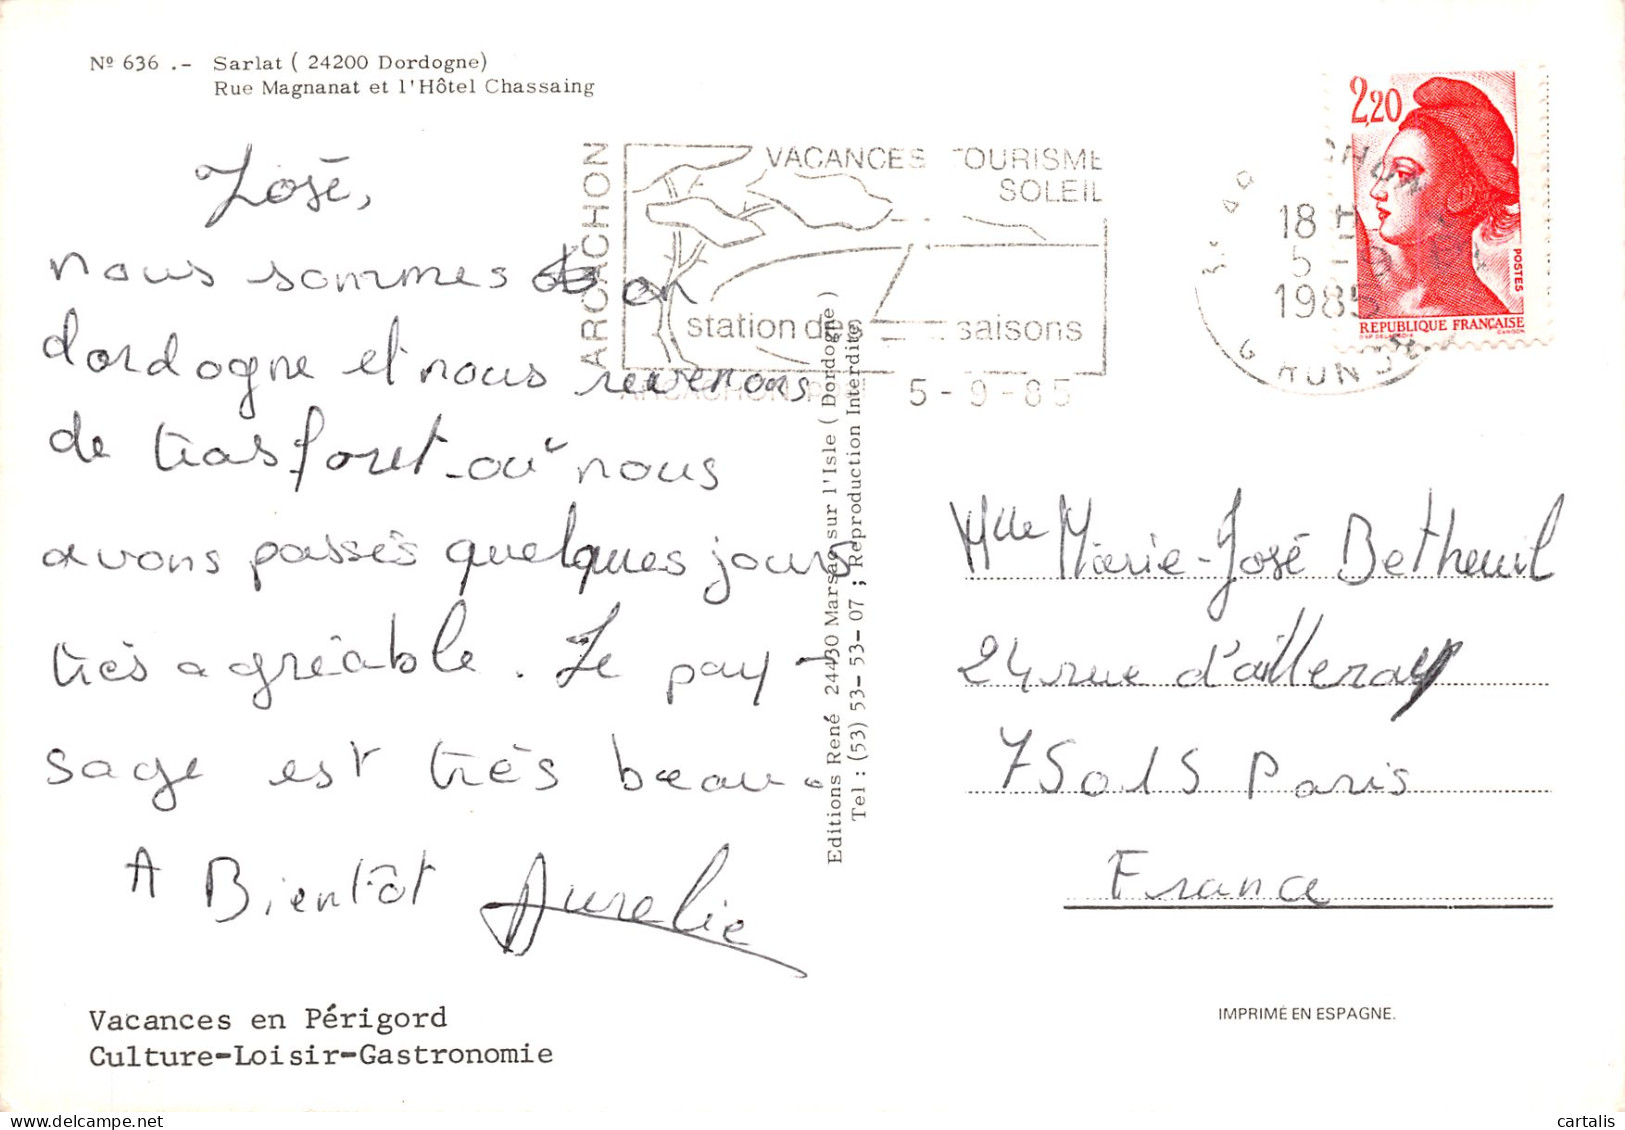 Nº 636 .- Sarlat ( 24200 Dordogne)
Rue Magnanat et l'Hôtel Chassaing
José,
nous sommes en
dordogne et nous revenons
de tras foret où nous
avons passés quelques jours
très agréable. Le pay-
sage est très beau.
A Bientôt Aurelie
Vacances en Périgord
Culture-Loisir-Gastronomie
ARCACHON
VACANCES TOURISME
SOLEIL
station des 4 saisons
5-9-85
Editions René 24430 Marsac sur l'Isle ( Dordogne )
Tel : (53) 53-53-53-07 ; Reproduction Interdite
18 H
5-9
1985
GIRONDE
2,20
POSTES
REPUBLIQUE FRANÇAISE
Mlle Marie-José Betheuil
24 rue d'alleray
75015 Paris
France
IMPRIMÉ EN ESPAGNE.
cartalis